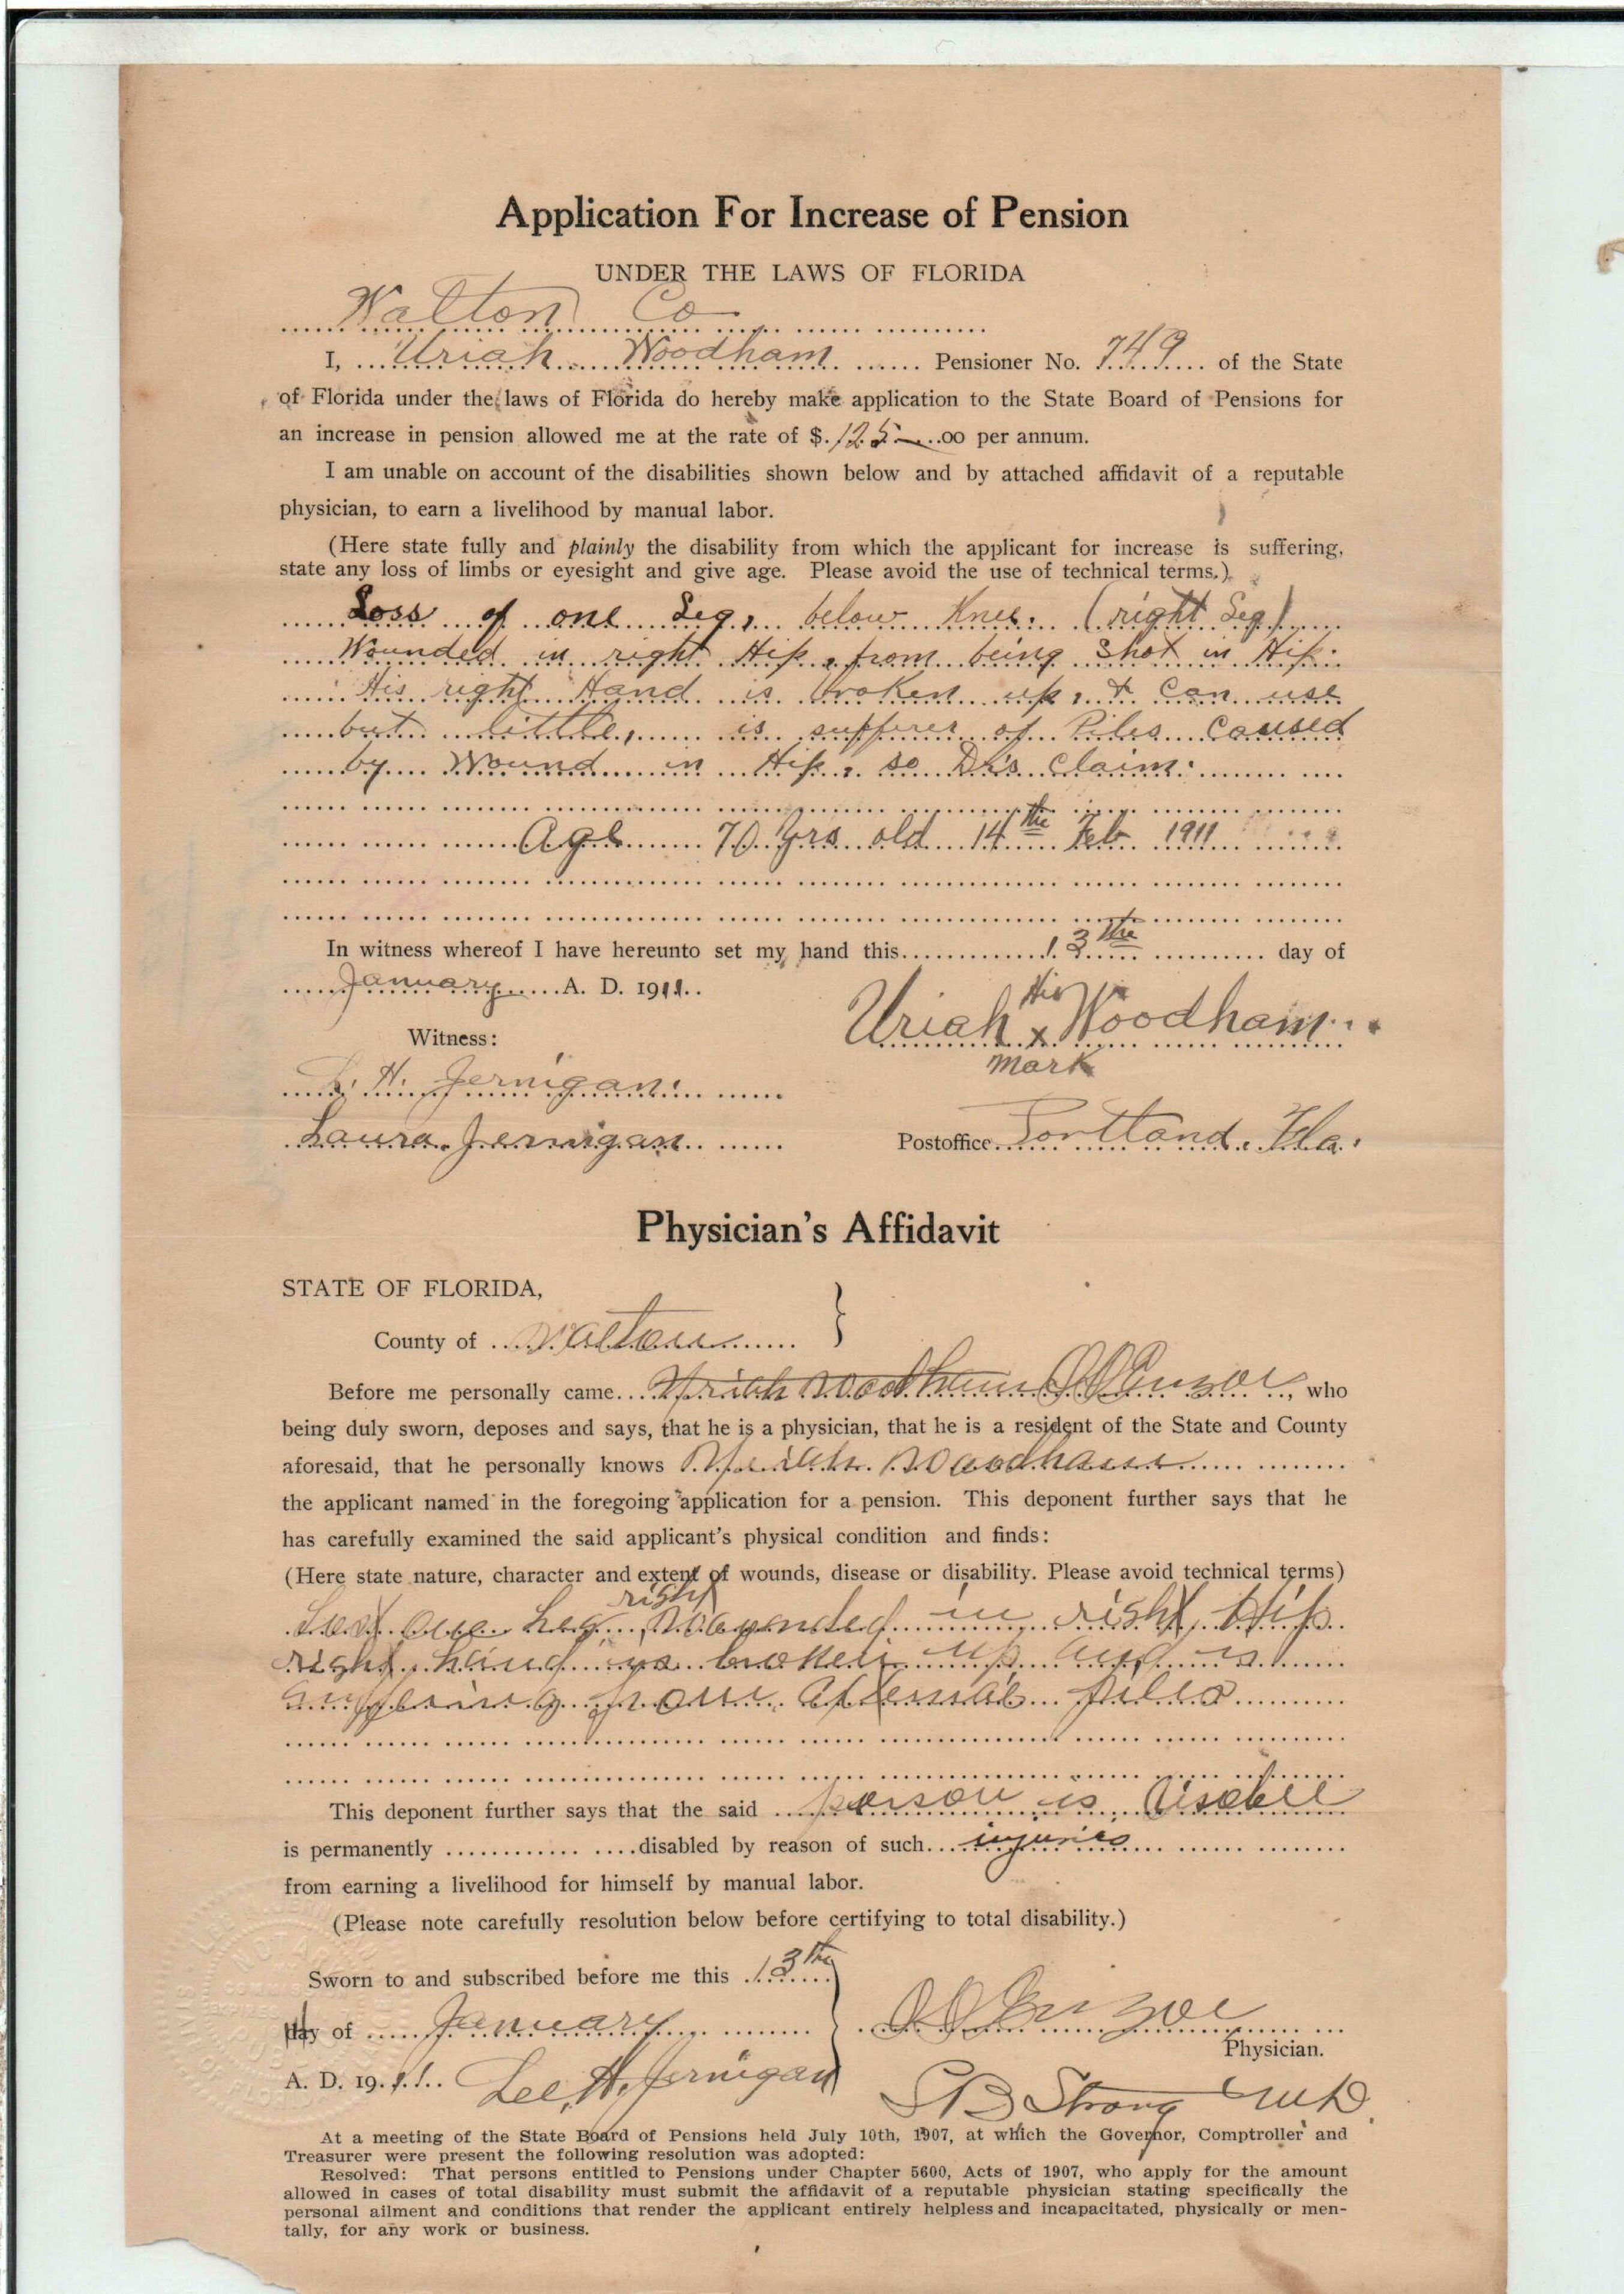 Application For Increase of Pension
UNDER THE LAWS OF FLORIDA
Walton Co
I, Uriah Woodham Pensioner No. 749 of the State
of Florida under the laws of Florida do hereby make application to the State Board of Pensions for
an increase in pension allowed me at the rate of $.125.00 per annum.
I am unable on account of the disabilities shown below and by attached affidavit of a reputable
physician, to earn a livelihood by manual labor.
(Here state fully and plainly the disability from which the applicant for increase is suffering,
state any loss of limbs or eyesight and give age. Please avoid the use of technical terms.)
Loss of one Leg, below Knee. (right Leg)
Wounded in right Hip, from being Shot in Hip.
His right Hand is broken up, & can use
but little, is sufferer of Piles caused
by Wound in Hip, so Drs claim.
Age 70 Yrs old 14th Feb 1911
In witness whereof I have hereunto set my hand this 13th day of
January A. D. 1911
His
Uriah x Woodham
mark
Witness:
L. H. Jernigan
Laura Jernigan
Postoffice Portland, Fla.
Physician's Affidavit
STATE OF FLORIDA,
County of Walton }
Before me personally came Uriah Woodham , who
being duly sworn, deposes and says, that he is a physician, that he is a resident of the State and County
aforesaid, that he personally knows Uriah Woodham
the applicant named in the foregoing application for a pension. This deponent further says that he
has carefully examined the said applicant's physical condition and finds:
(Here state nature, character and extent of wounds, disease or disability. Please avoid technical terms)
right
Lost one Leg, Wounded in right Hip
right hand is broken up and is
suffering from piles
This deponent further says that the said person is
is permanently disabled by reason of such injuries
from earning a livelihood for himself by manual labor.
(Please note carefully resolution below before certifying to total disability.)
Sworn to and subscribed before me this 13th
day of January
Physician.
A. D. 1911. Lee H. Jernigan
S B Strong MD.
At a meeting of the State Board of Pensions held July 10th, 1907, at which the Governor, Comptroller and
Treasurer were present the following resolution was adopted:
Resolved: That persons entitled to Pensions under Chapter 5600, Acts of 1907, who apply for the amount
allowed in cases of total disability must submit the affidavit of a reputable physician stating specifically the
personal ailment and conditions that render the applicant entirely helpless and incapacitated, physically or men-
tally, for any work or business.